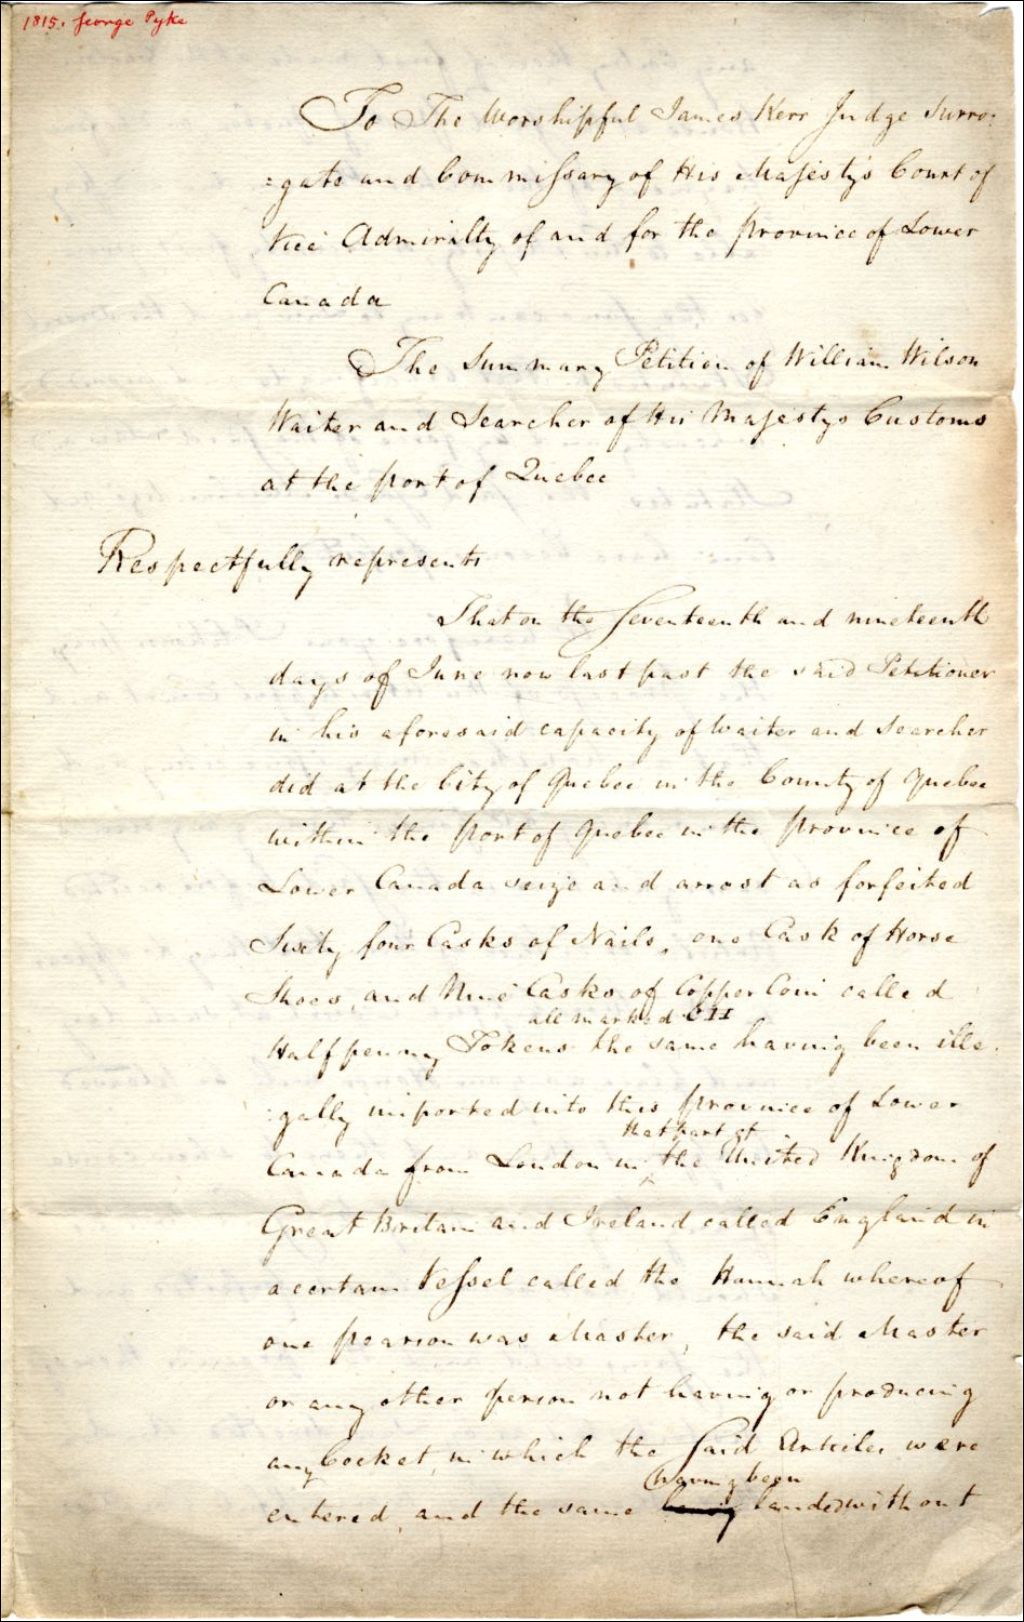 1815. George Pyke
To The Worshipful James Kerr Judge Surro:
:gate and Commissary of His Majesty's Court of
Vice Admiralty of and for the province of Lower
Canada
The Summary Petition of William Wilson
Waiter and Searcher of His Majestys Customs
at the port of Quebec
Respectfully represents
That on the Seventeenth and nineteenth
days of June now last past the said Petitioner
in his aforesaid capacity of Waiter and Searcher
did at the City of Quebec in the County of Quebec
within the port of Quebec in the province of
Lower Canada seize and arrest as forfeited
Sixty four Casks of Nails, one Cask of Horse
Shoes, and Nine Casks of Copper Coin called
all marked CII
Halfpenny Tokens the same having been ille:
:gally imported into this province of Lower
that part of
Canada from London in ^ the United Kingdom of
Great Britain and Ireland called England in
a certain Vessel called the Hannah whereof
one pearson was Master, the said Master
or any other person not having or producing
any Cocket, in which the said Articles were
having been
entered, and the same being landed without